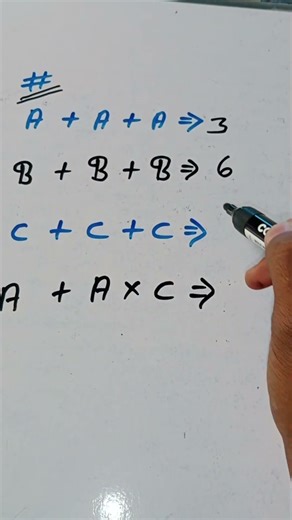 #
A + A + A ⇒ 3
B + B + B ⇒ 6
C + C + C ⇒
A + A × C ⇒